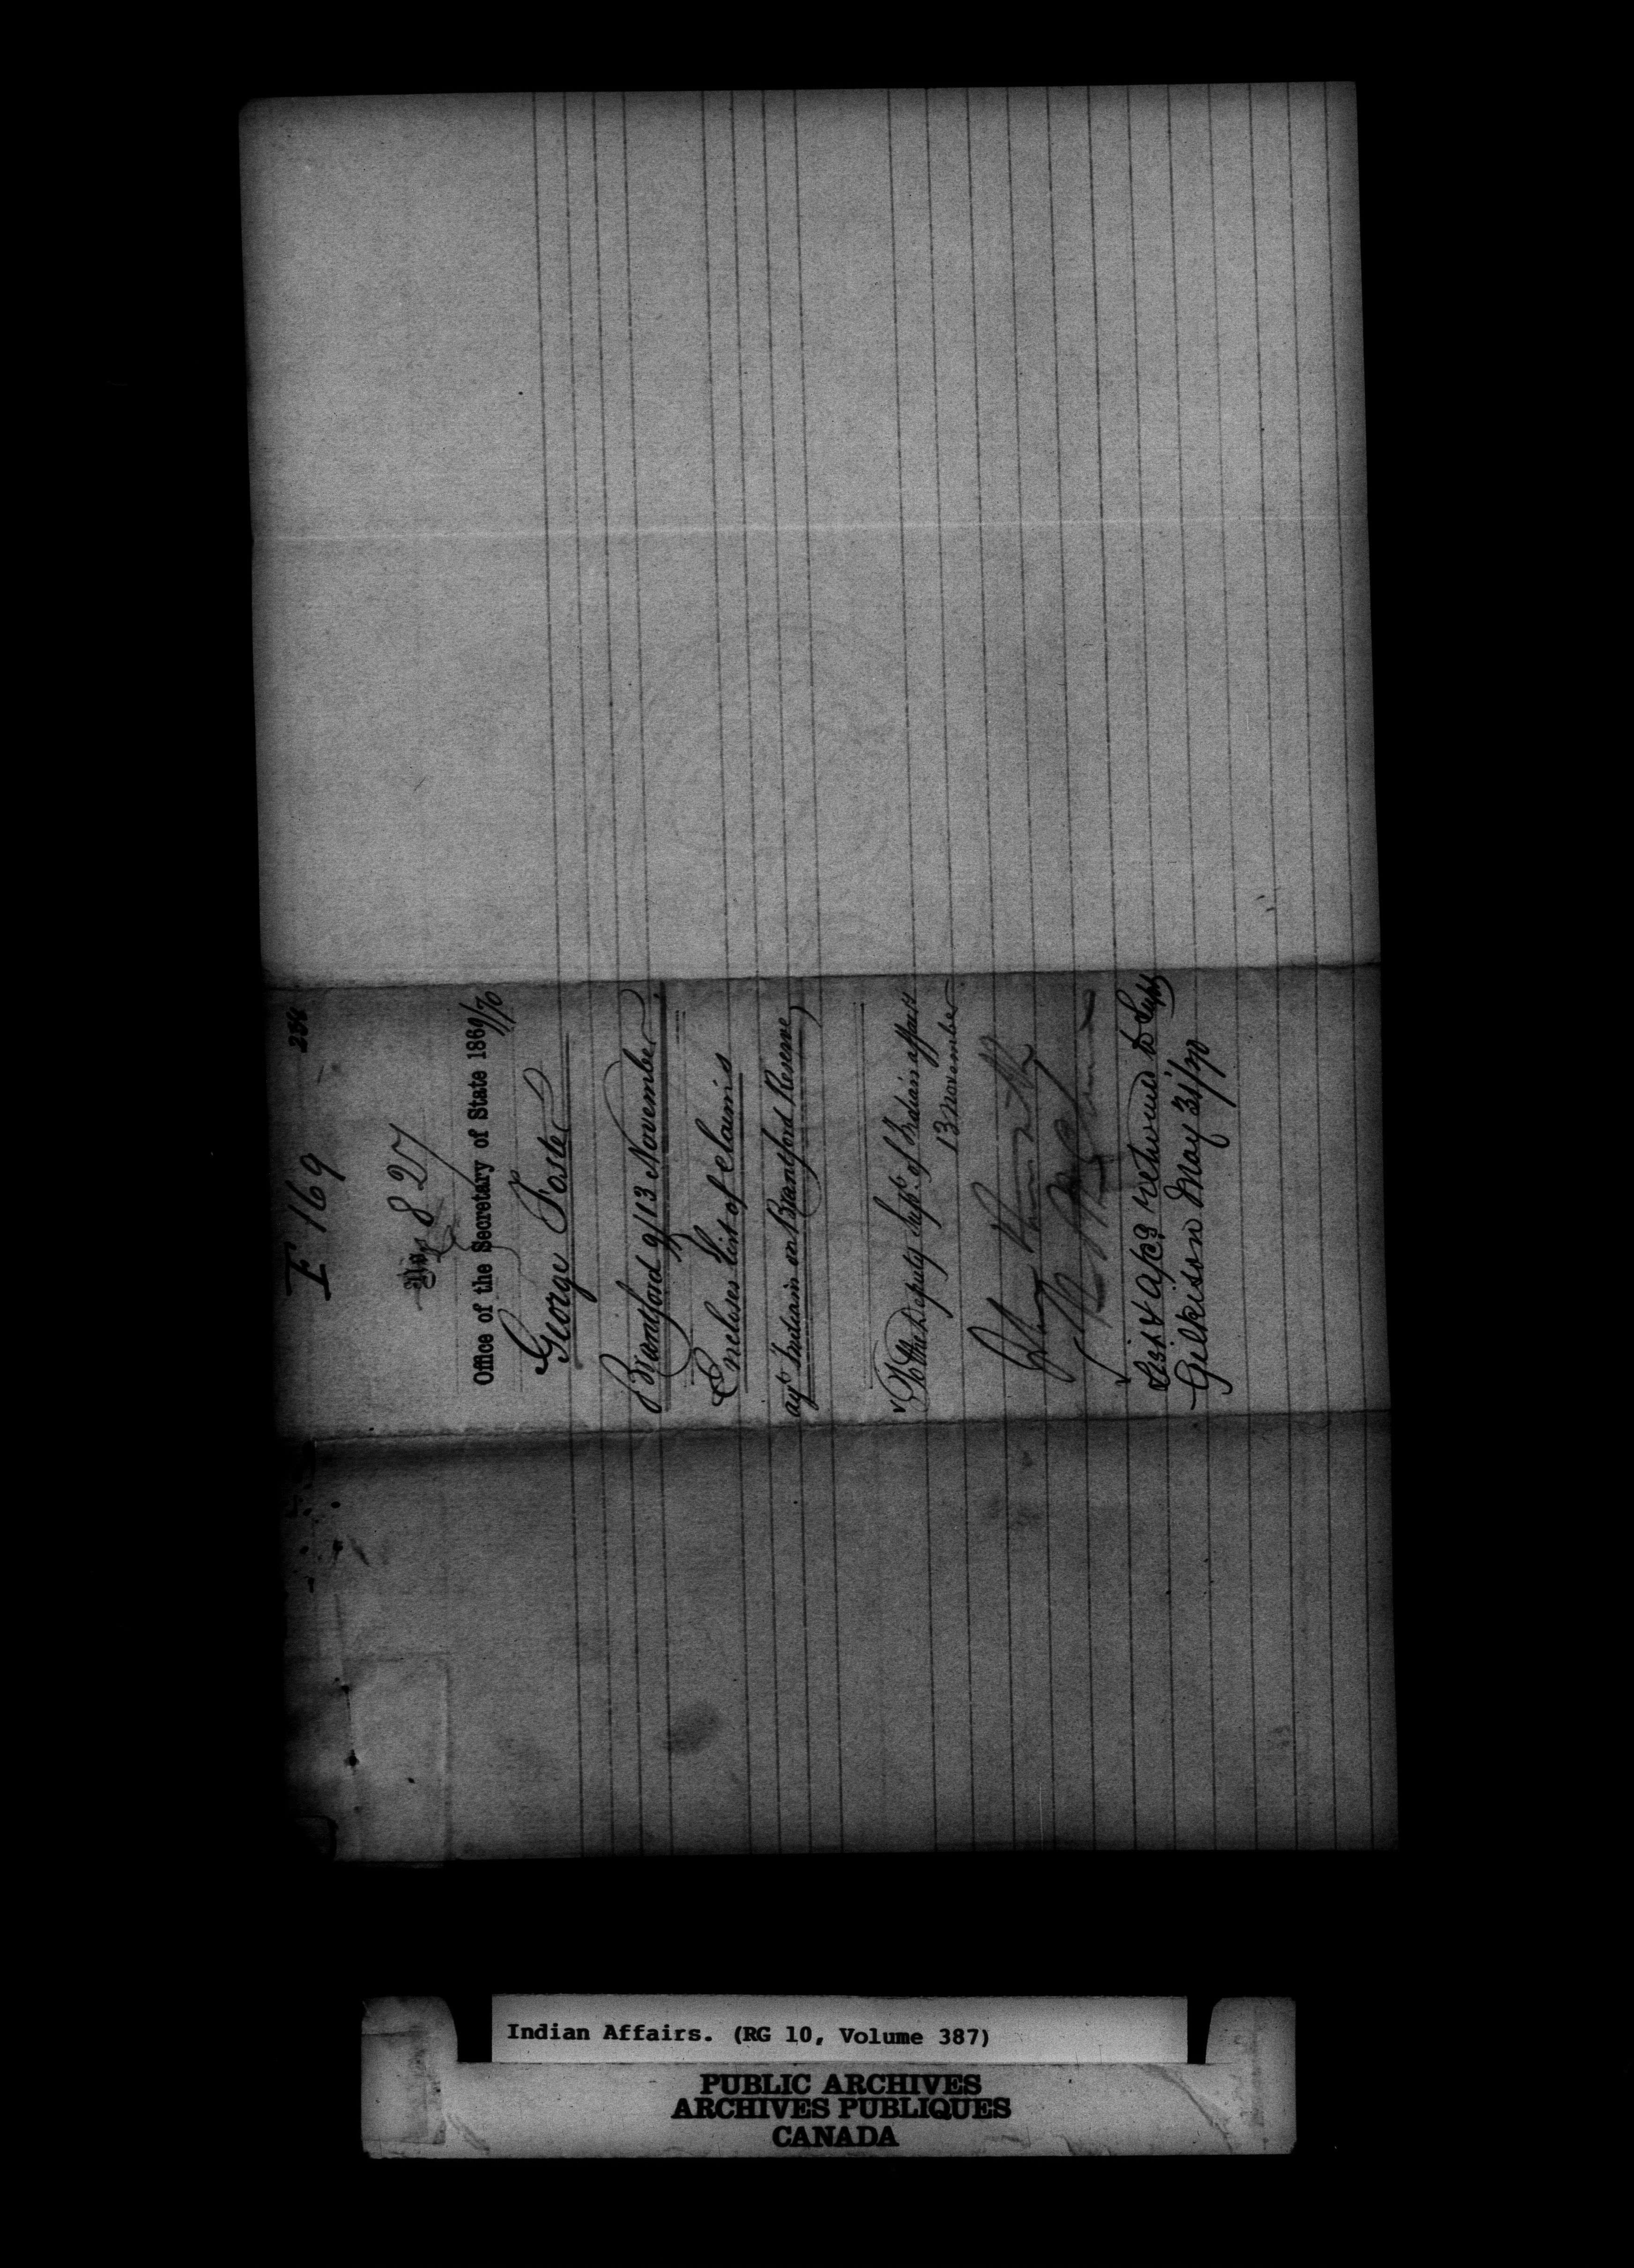 238
F 169
No. 827
Office of the Secretary of State 1869/70
George Foster
Brantford 9/13 November
Encloses list of claims
agt Indians on Brantford Reserve
To the Deputy Supt. of Indian affairs
13 November
List & ap/c3 returned to Supt
Gilkison May 31/70
Indian Affairs. (RG 10, Volume 387)
PUBLIC ARCHIVES
ARCHIVES PUBLIQUES
CANADA